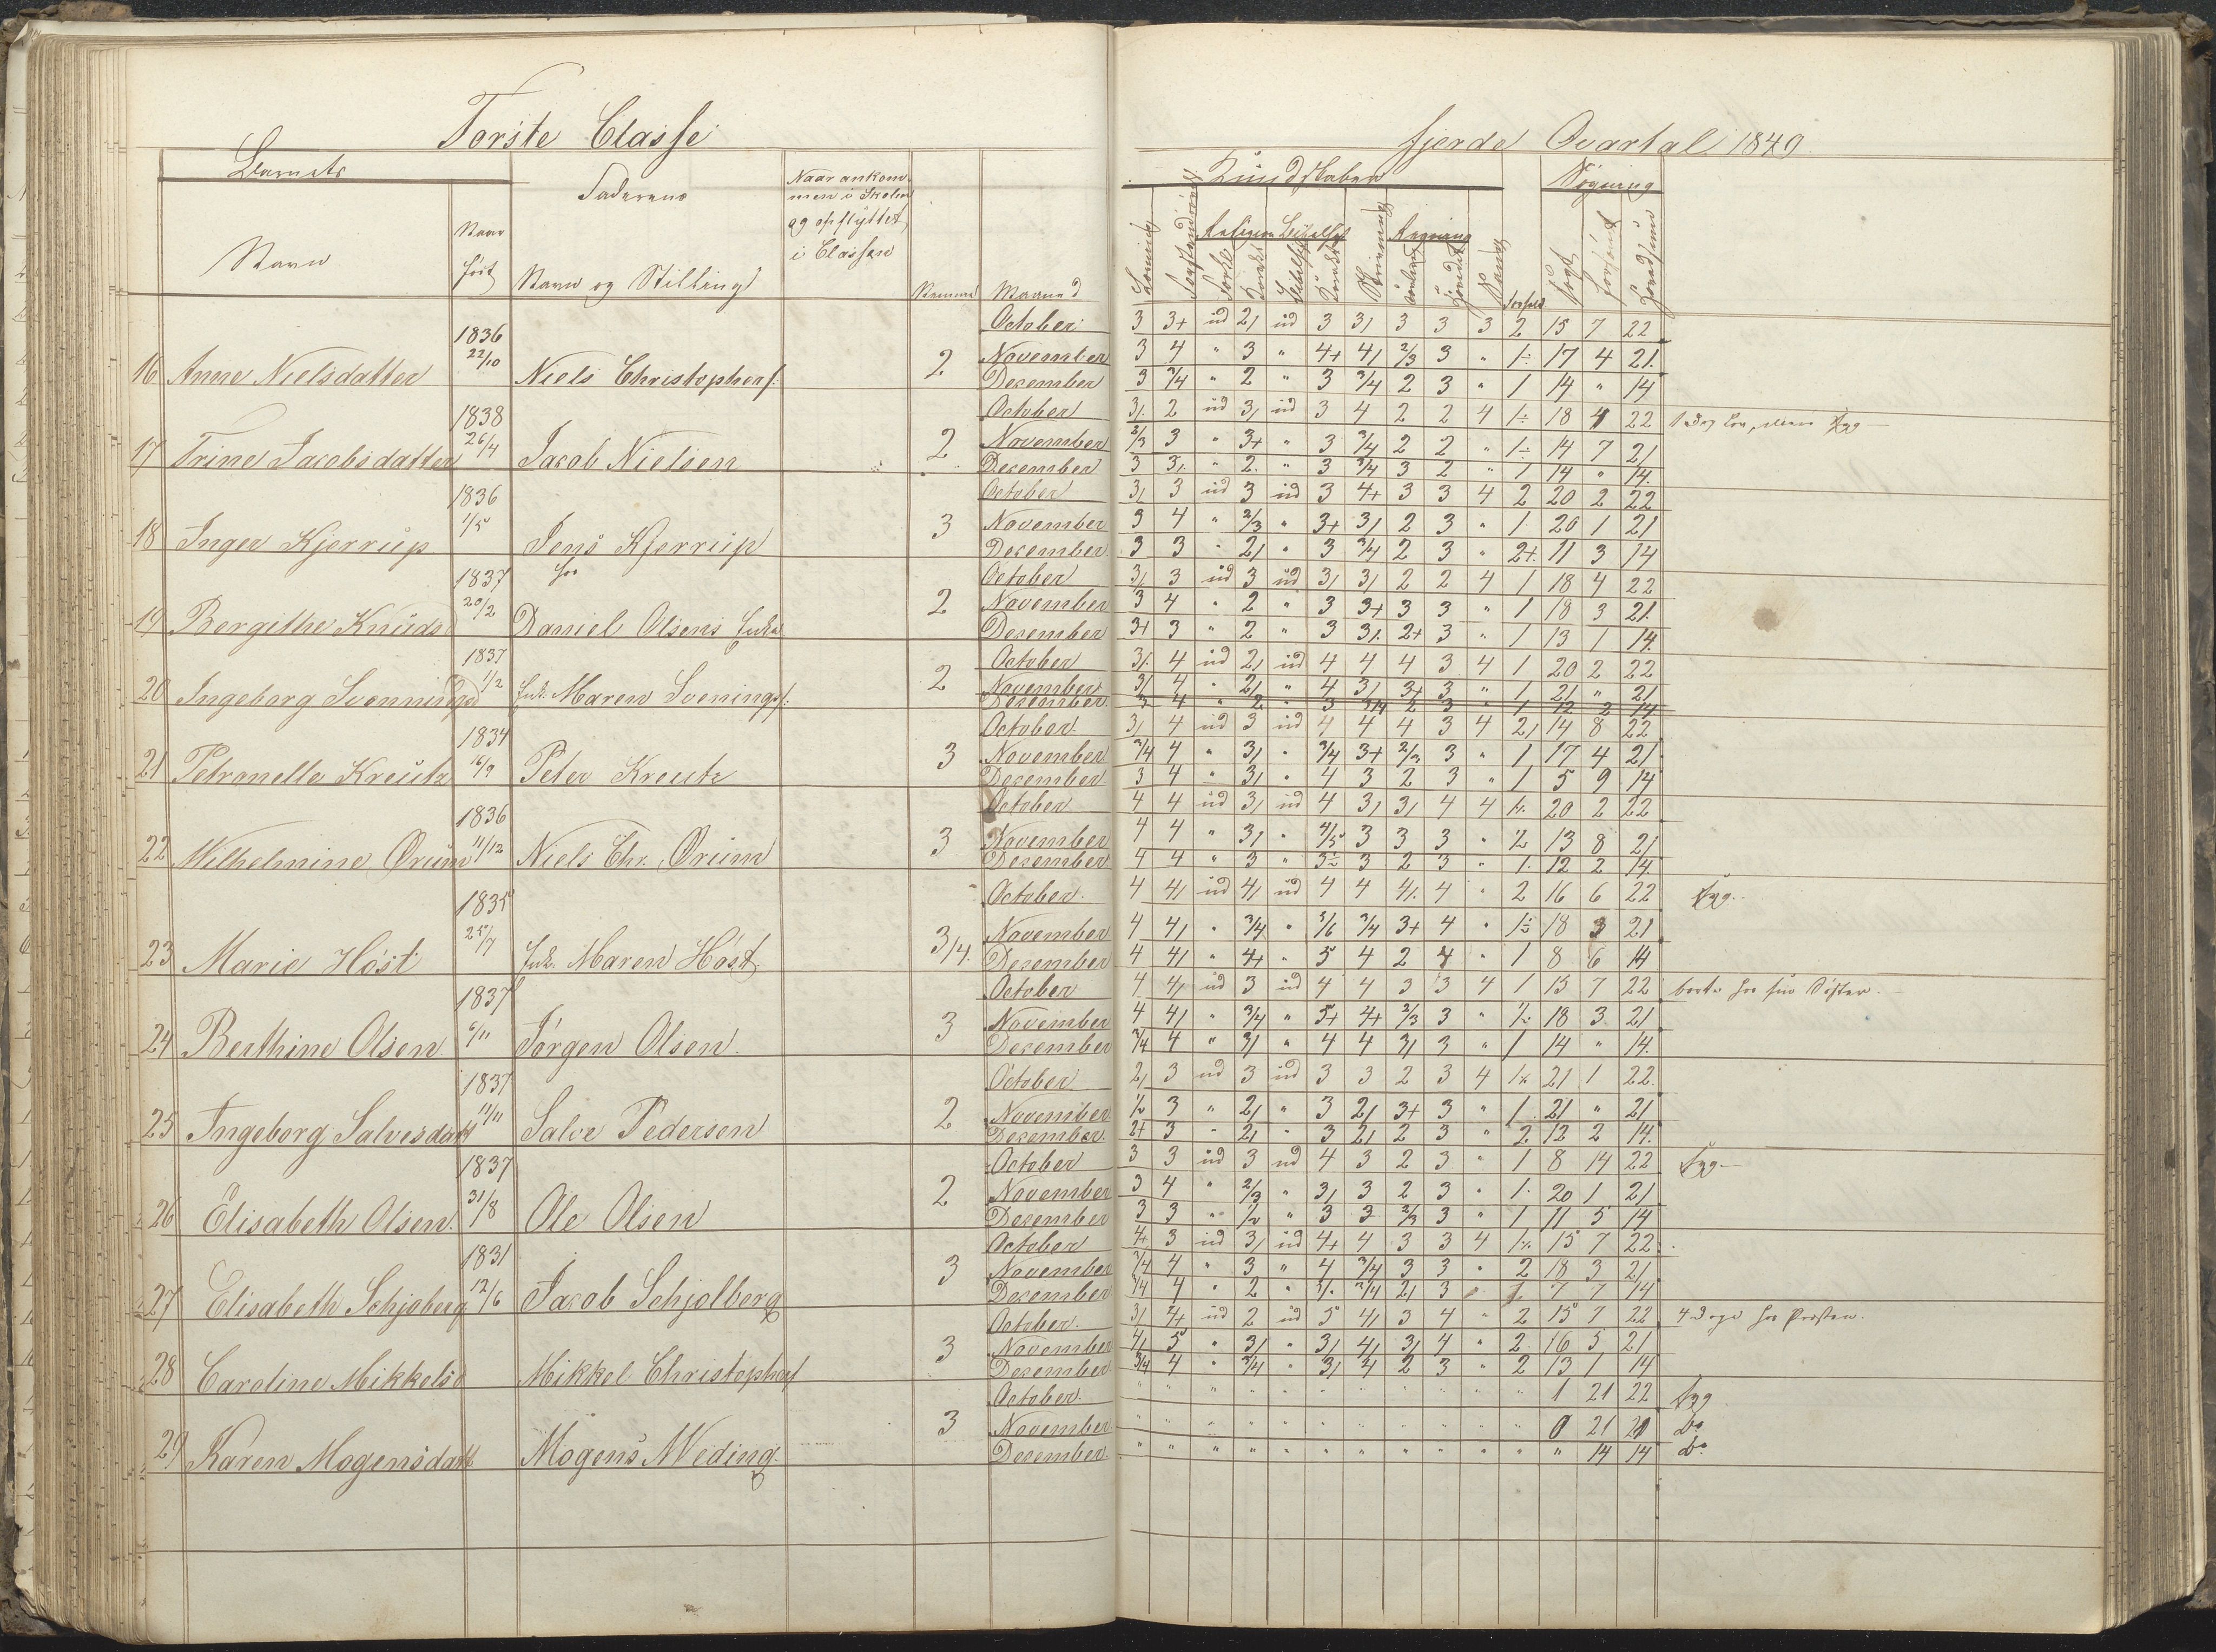 Første Classe
fjerde Qvartal 1849
Barnets
Faderens
Naar ankom-
men i Skolen
og opflyttet
i Classen
Navn
Naar
født
Navn og Stilling
Nummer
Maaned
Kundskaber
Søgning
Religion
Bibelhist
Regning
1836
October 3 3+ ud 2/ ud 3 3/ 3 3 3 2 15 7 22
16 Anne Nielsdatter 22/10 Niels Christophers. 2 November 3 4 " 3 " 4+ 4/ 2/3 3 " 1÷ 17 4 21.
December 3 3/4 " 2 " 3 3/4 2 3 " 1 14 " 14
1838
October 3/. 2 ud 3/ ud 3 4 2 2 4 1÷ 18 4 22
17 Trine Jacobsdatter 26/4 Jacob Nielsen 2 November 2/3 3 " 3+ " 3 3/4 2 2 " 1÷ 14 7 21
December 3 3/. " 2. " 3 3/4 3 2 " 1 14 " 14.
1836
October 3/ 3 ud 3 ud 3 4+ 3 3 4 2 20 2 22
18 Inger Kjerrup 1/5 Jens Kjerrup 3 November 3 4 " 2/3 " 3+ 3/ 2 3 " 1 20 1 21
December 3 3 " 2/ " 3 3/4 2 3 " 2+. 11 3 14
1837 hos
October 3/ 3 ud 3 ud 3/ 3/ 2 2 4 1 18 4 22
19 Bergithe Knuds 20/2 Daniel Olsens Enke 2 November 3 4 " 2 " 3 3+ 3 3 " 1 18 3 21.
December 3+ 3 " 2 " 3 3/. 2+ 3 " 1 13 1 14.
1837
October 3/. 4 ud 2/ ud 4 4 4 3 4 1 20 2 22
20 Ingeborg Svenningsd 1/2 Enk. Maren Svenings. 2 November 3/ 4 " 2/ " 4 3/ 3+ 3 " 1 21 " 21
December 3 4 " 2 " 3 3/4 2 3 " 1 12 2 14
1834
October 3/ 4 ud 3 ud 4 4 4 3 4 2/ 14 8 22
21 Petronelle Kreutz 16/9 Peter Kreutz 3 November 3/4 4 " 3/ " 3/4 3+ 2/3 3 " 1 17 4 21
December 3 4 " 3/ " 4 3 2 3 " 1 5 9 14
1836
October 4 4 ud 3/ ud 4 3/ 3/ 4 4 1÷. 20 2 22
22 Wilhelmine Ørum 11/12 Niels Chr. Ørum 3 November 4 4 " 3/ " 4/5 3 3 3 " 1/2 13 8 21
December 4 4 " 3 " 3÷ 3 2 3 " 1. 12 2 14.
1835
October. 4 4/ ud 4/ ud 4 4 4/. 4 " 2 16 6 22 syg.
23 Marie Høst 25/7 Enk. Maren Høst 3/4. November 4 4/ " 3/4 " 5/6 3/4 3+ 4 " 1÷ 18 3 21
December 4 4/ " 4+ " 5 4 2 4 " 1 8 6 14
1837
October 4 4/ ud 3 ud 4 4 3 3 4 1 15 7 22 borte hos sin Søster.
24 Berthine Olsen. 6/11 Jørgen Olsen. 3 November 4 4/ " 3/4 " 5+ 4+ 2/3 3 " 1÷ 18 3 21
December 3/4 4 " 3/ " 4 4 3/ 3 " 1 14 " 14.
1837
October 2/ 3 ud 3 ud 3 3 2 3 4 1÷ 21 1 22.
25 Ingeborg Salvesdatt 11/11 Salve Pedersen 2 November 1/2 3 " 2/ " 3 2/ 3+ 3 " 1 21 " 21
December. 2+ 3 " 2/ " 3 2/ 2 3 " 2 12 2 14.
1837
October 3 3 ud 3 ud 4 3 2 3 " 1 8 14 22 syg.
26 Elisabeth Olsen. 31/8 Ole Olsen 2 November 3 4 " 2/3 " 3/ 3 2 3 " 1. 20 1 21
December 3 3 " 1/2 " 3 3 2/3 3 " 1 11 5 14
1831
October 4+ 3 ud 3/ ud 4+ 4 3 3 4 1÷ 15 7 22.
27 Elisabeth Schjøberg 12/6 Jacob Schjølberg 3 November 3/4 4 " 3 " 4 3/4 3 3 " 2 18 3 21
December 3/4 4 " 2 " 3/. 3/4 2/ 3 " 1 7 7 14
October. 3/ 4+ ud 2 ud 5 4/ 3 4 " 2 15 7 22 4 Dage hos Præsten.
28 Caroline Mikkelsd Mikkel Christophers 3 November 4/ 5 " 3/ " 3/ 4/ 3/ 4 " 2 16 5 21
December 3/4 4 " 3/4 " 3/ 4 2 3 " 2 13 1 14
October. " " " " " " " " " " " 1 21 22 syg
29 Karen Mogensdatt Mogens Weding. 3 November " " " " " " " " " " " 0 21 21 Do
December. " " " " " " " " " " " " 14 14 Do.